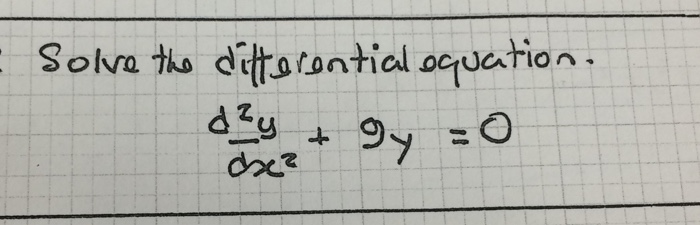 Solve the differential equation.
d²y/dx² + 9y = 0